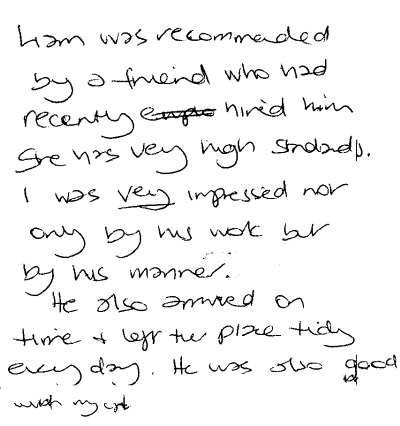 Liam was recommended
by a friend who had
recently hired him
She has very high standards.
I was very impressed not
only by his work but
by his manner.
He also arrived on
time + left the place tidy
every day. He was also good
with my cat